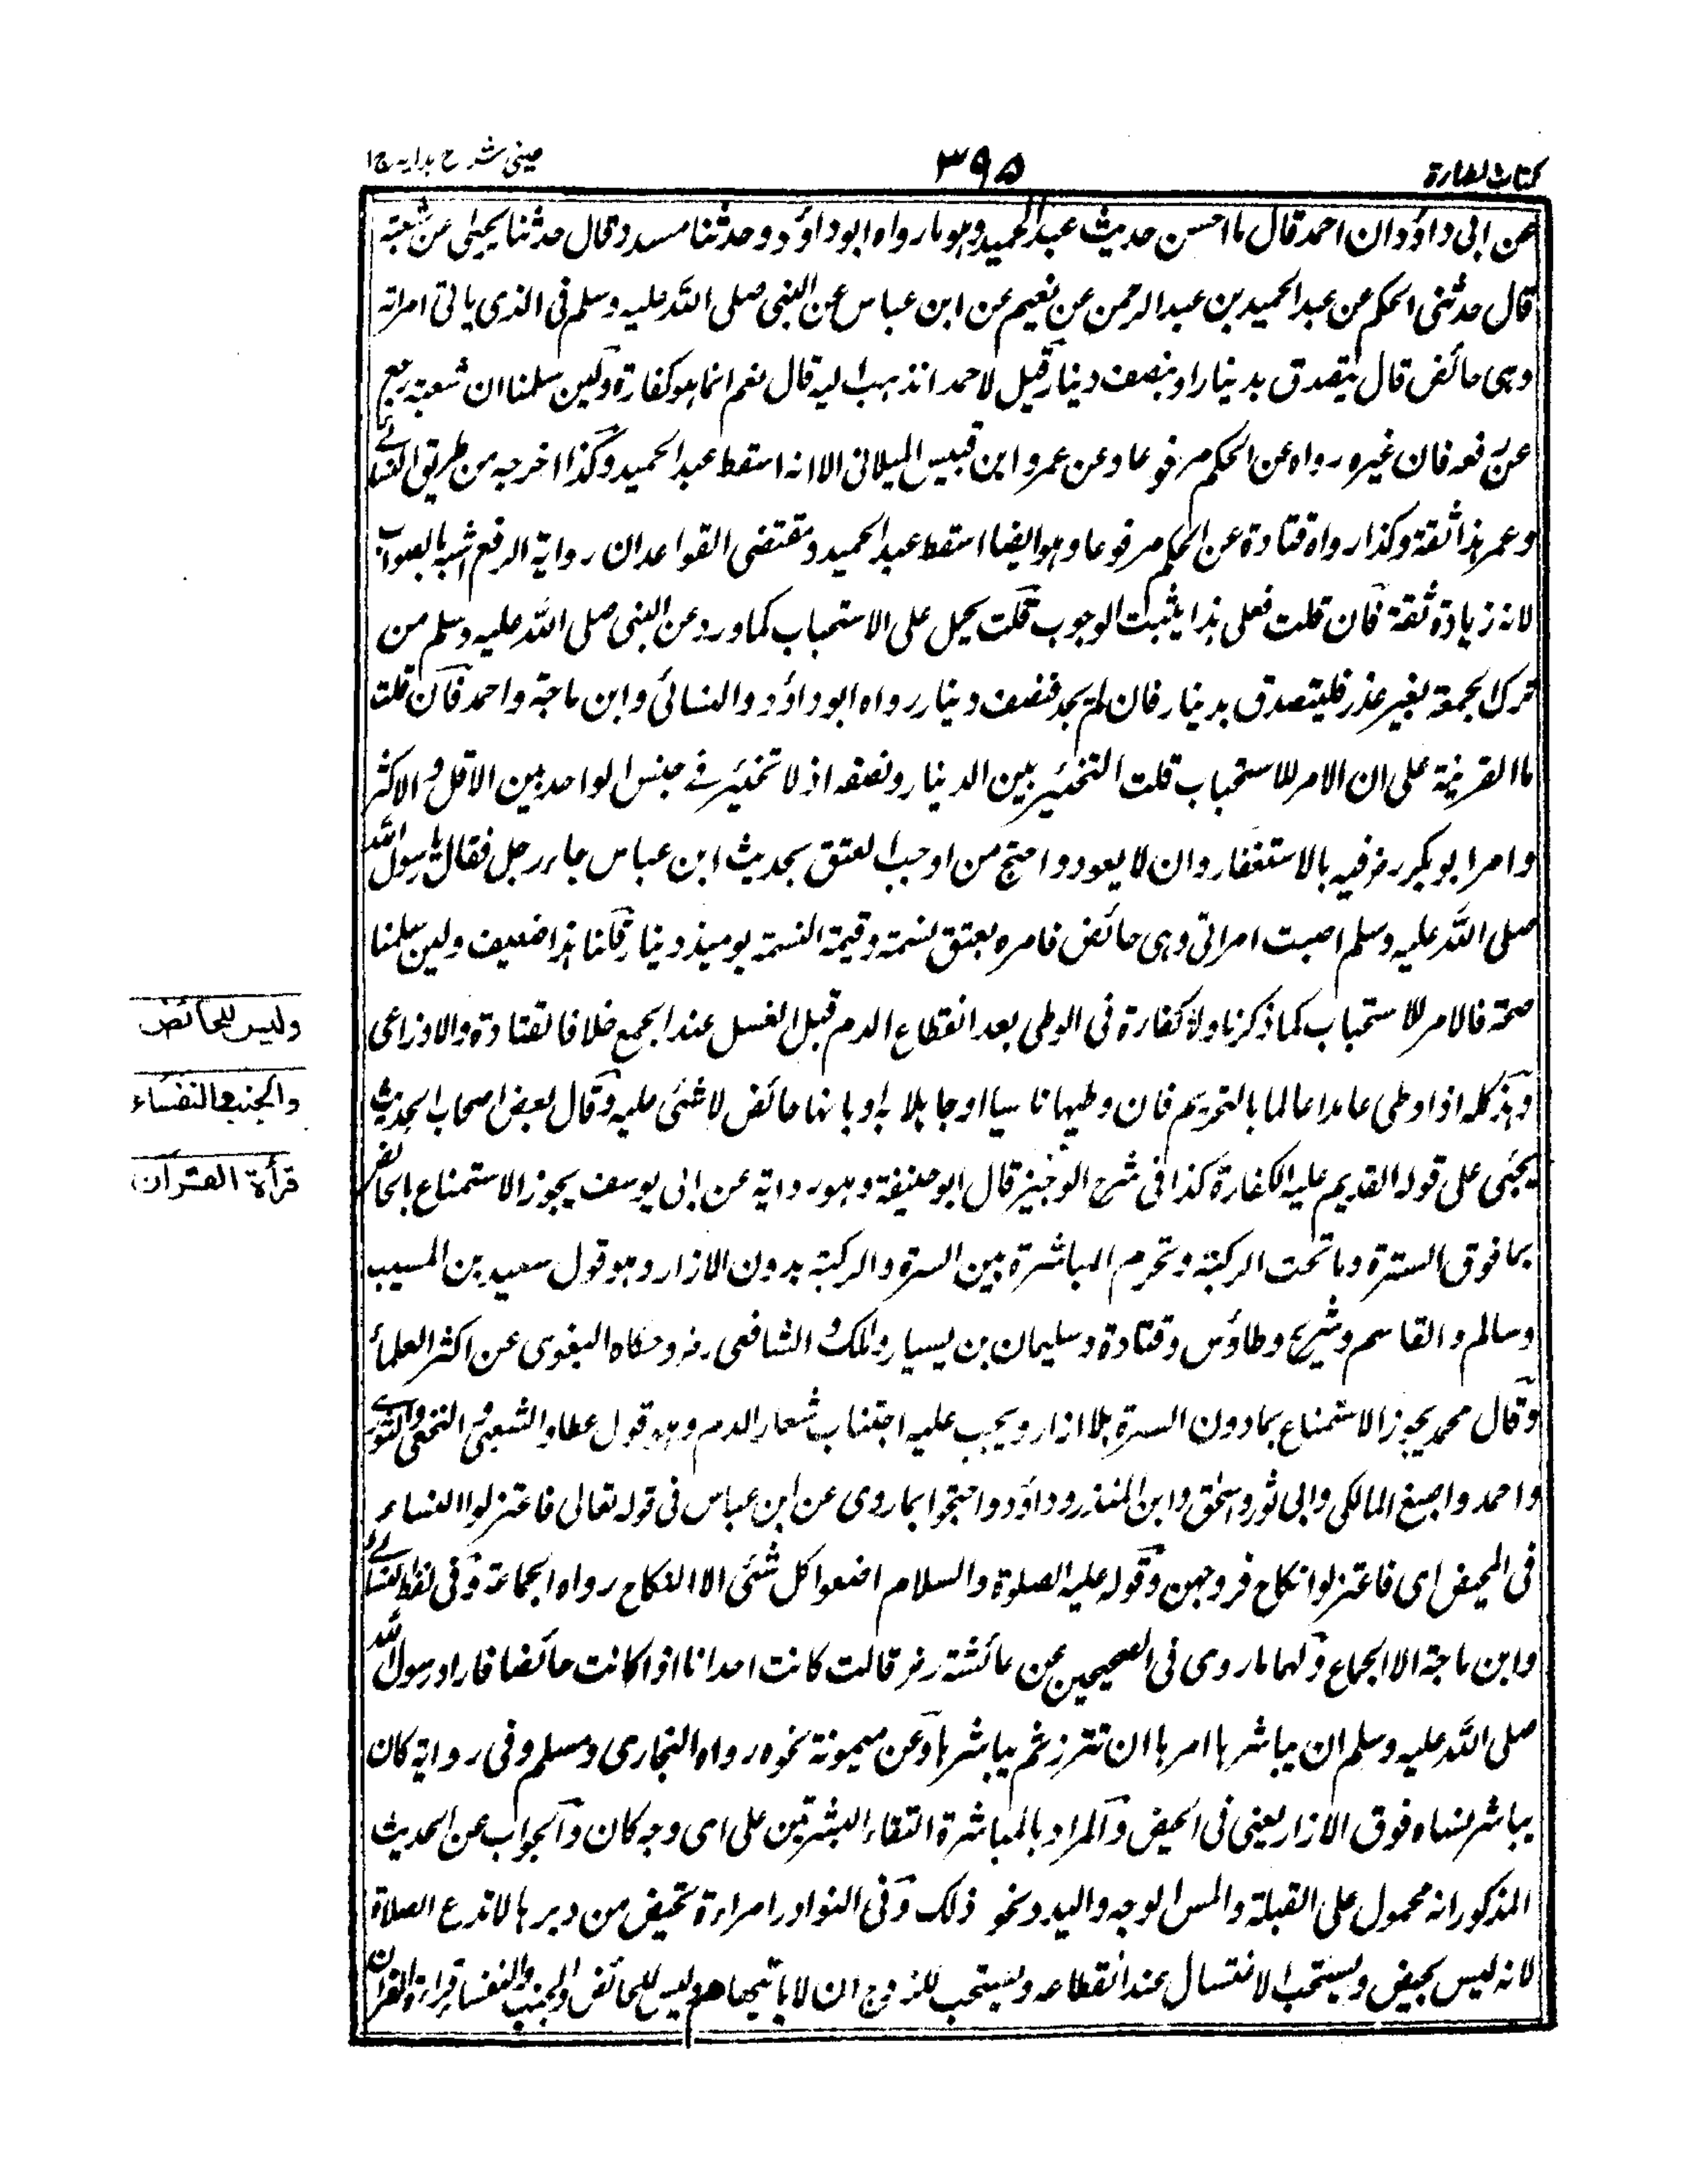 كتاب الطهارة
۳۹۵
عینی شرح ہدایہ ج۱
عن ابی داؤد ان احمد قال ما احسن حدیث عبد الحمید وہو ما رواہ ابو داؤد وحدثنا مسدد قال حدثنا یحیی عن شعبة
قال حدثنی الحکم عن عبد الحمید بن عبد الرحمن عن نعیم عن ابن عباس عن النبی صلی اللہ علیہ وسلم فی الذی یاتی امراتہ
وہی حائض قال یتصدق بدینار او بنصف دینار قیل لاحمد اتذہب الیہ قال نعم انما ہو کفارة ولئن سلمنا ان شعبة رجع
عن رفعہ فان غیرہ رواہ عن الحکم مرفوعا وعن عمرو ابن قیس الملائی الا انہ اسقط عبد الحمید وکذا اخرجہ من طریق النسائی
وعمر ہذا ثقة وکذا رواہ قتادة عن الحکم مرفوعا وہو ایضا اسقط عبد الحمید ومقتضی القواعد ان روایة الرفع اشبہ بالصواب
لانہ زیادة ثقة فان قلت فعلی ہذا یثبت الوجوب قلت یحمل علی الاستحباب کما ورد عن النبی صلی اللہ علیہ وسلم من
ترک الجمعة بغیر عذر فلیتصدق بدینار فان لم یجد فنصف دینار رواہ ابو داؤد والنسائی وابن ماجة واحمد فان قلت
ما القرینة علی ان الامر للاستحباب قلت التخییر بین الدینار ونصفہ اذ لا تخییر فے جنس الواحد بین الاقل و الاکثر
وامر ابو بکر رض فیہ بالاستغفار وان لا یعود واحتج من اوجب العتق بحدیث ابن عباس جاء رجل فقال یا رسول اللہ
صلی اللہ علیہ وسلم اصبت امراتی وہی حائض فامرہ بعتق نسمة وقیمة النسمة یومیذ دینار قلنا ہذا ضعیف ولئن سلمنا
صحتہ فالامر للاستحباب کما ذکرنا ولا کفارة فی الوطی بعد انقطاع الدم قبل الغسل عند الجمیع خلافا لقتادة والاوزاعی
وہذ کلہ اذا وطی عامدا عالما بالتحریم فان وطیہا ناسیا او جاہلا بہ او بانہا حائض لا شئی علیہ وقال بعض اصحاب الحدیث
یجئی علی قولہ القدیم علیہ الکفارة کذا فی شرح الوجیز قال ابو حنیفة وہو روایة عن ابی یوسف یجوز الاستمتاع بالحائض
بما فوق السترة وما تحت الرکبة وتحرم المباشرة بین السرة والرکبة بدون الازار وہو قول سعید بن المسیب
وسالم والقاسم وشریح وطاؤس وقتادة وسلیمان بن یسار ومالک و الشافعی رض وحکاہ البغوی عن اکثر العلماء
وقال محمد یجوز الاستمتاع بما دون السرة بلا ازار ویجب علیہ اجتناب شعار الدم وہو قول عطاء والشعبی و النخعی والثوری
واحمد واصبغ المالکی وابی ثور واسحق وابن المنذر وداؤد واحتجوا بما روی عن ابن عباس فی قولہ تعالی فاعتزلوا النساء
فی المحیض ای فاعتزلوا نکاح فروجہن وقولہ علیہ الصلوة والسلام اصنعوا کل شئی الا النکاح رواہ الجماعة وفی لفظ النسائی
وابن ماجة الا الجماع ولہما ما روی فی الصحیحین عن عائشة رض قالت کانت احدانا اذا کانت حائضا فاراد رسول اللہ
صلی اللہ علیہ وسلم ان یباشرہا امرہا ان تتزر ثم یباشرہا وعن میمونة نحوہ رواہ البخاری ومسلم وفی روایة کان
یباشر نساہ فوق الازار یعنی فی الحیض والمراد بالمباشرة التقاء البشرتین علی ای وجہ کان والجواب عن الحدیث
المذکور انہ محمول علی القبلة والمس الوجہ والید ونحو ذلک وفی النوادر امراءة تحیض من دبرہا لا تدع الصلاة
لانہ لیس بحیض ویستحب الاغتسال عند انقطاعہ ویستحب للزوج ان لا یاتیہا هم ولیس للحائض والجنب والنفساء قراءة القرآن
ولیس للحائض
والجنب والنفساء
قرأة القرآن